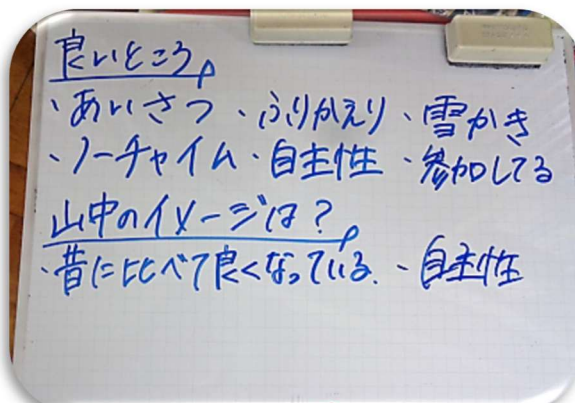 良いところ
・あいさつ ・ふりかえり ・雪かき
・ノーチャイム ・自主性 ・参加してる
山中のイメージは？
・昔に比べて良くなっている ・自主性